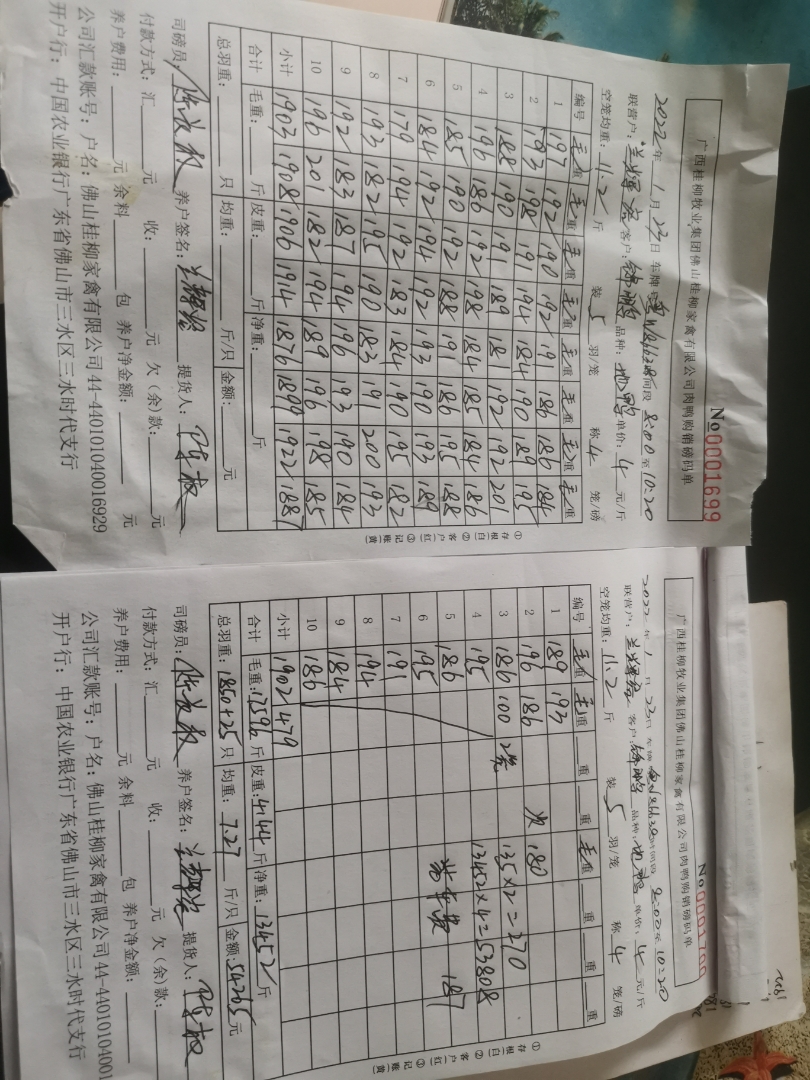 广西桂柳牧业集团佛山桂柳家禽有限公司肉鸭购销磅码单
No 0001699
2022年 1月 23日 车牌: 时间段 8:00 至 10:20
联营户: 客户: 品种: 单价: 4 元/斤
空笼均重: 11.2 斤 装 5 羽/笼 称 4 笼/磅
编号 毛重 毛重 毛重 毛重 毛重 毛重 毛重 毛重
1 197 192 190 192 191 186 186 184
2 193 198 191 194 184 190 189 195
3 188 190 191 189 181 192 192 201
4 196 186 192 198 184 185 184 186
5 185 190 192 188 191 186 195 188
6 184 192 194 192 193 190 193 189
7 179 194 192 183 184 190 195 182
8 193 182 195 190 183 191 200 193
9 192 183 187 194 196 193 190 184
10 196 201 182 194 189 196 198 185
小计 1903 1908 1906 1914 1876 1899 1922 1887
合计 毛重: 斤 皮重: 斤 净重: 斤
总羽重: 只 均重: 斤/只 金额: 元
①存根(白) ②客户(红) ③记账(黄)
司磅员: 养户签名: 提货人:
付款方式: 汇 元 收: 元 欠(余)款: 元
养户费用: 元 余料 包 养户净金额: 元
公司汇款账号: 户名: 佛山桂柳家禽有限公司 44-440101040016929
开户行: 中国农业银行广东省佛山市三水区三水时代支行
广西桂柳牧业集团佛山桂柳家禽有限公司肉鸭购销磅码单
No 0001700
2022年 1月 23日 车牌: 时间段 8:00 至 10:20
联营户: 客户: 品种: 单价: 4 元/斤
空笼均重: 11.2 斤 装 5 羽/笼 称 4 笼/磅
编号 毛重 毛重 重 毛重 重 重 重
1 189 193
2 196 186 次 180
3 186 100 2笼 135×2=270
4 195 13452×4=53808
5 186 187
6 195
7 191
8 194
9 184
10 186
小计 1902 479
合计 毛重: 17596 斤 皮重: 4144 斤 净重: 13452 斤
总羽重: 1850+25 只 均重: 7.27 斤/只 金额: 54265 元
①存根(白) ②客户(红) ③记账(黄)
司磅员: 养户签名: 提货人:
付款方式: 汇 元 收: 元 欠(余)款:
养户费用: 元 余料 包 养户净金额:
公司汇款账号: 户名: 佛山桂柳家禽有限公司 44-44010104001
开户行: 中国农业银行广东省佛山市三水区三水时代支行